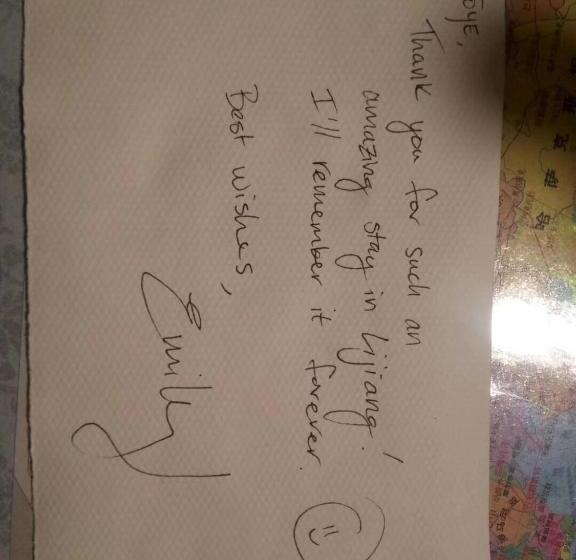 Thank you for such an
amazing stay in Lijiang!
I'll remember it forever.
Best wishes,
Emily